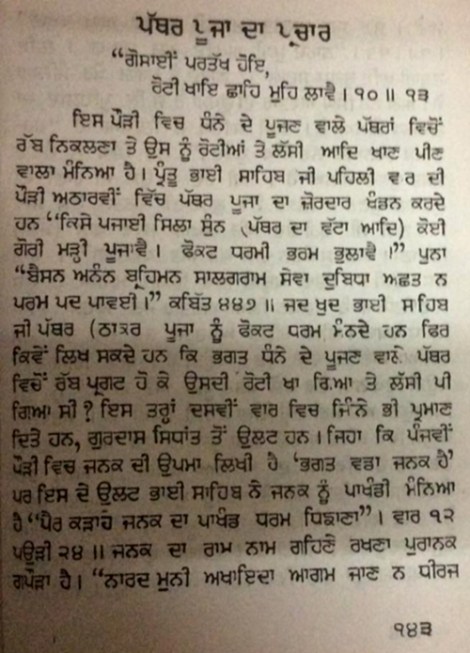 ਪੱਥਰ ਪੂਜਾ ਦਾ ਪ੍ਰਚਾਰ
“ਗੋਸਾਈਂ ਪਰਤੱਖ ਹੋਇ,
ਰੋਟੀ ਖਾਇ ਛਾਹਿ ਮੁਹਿ ਲਾਵੈ। ੧੦॥ ੧੩
ਇਸ ਪੌੜੀ ਵਿਚ ਧੰਨੇ ਦੇ ਪੂਜਣ ਵਾਲੇ ਪੱਥਰਾਂ ਵਿਚੋਂ
ਰੱਬ ਨਿਕਲਣਾ ਤੇ ਉਸ ਨੂੰ ਰੋਟੀਆਂ ਤੇ ਲੱਸੀ ਆਦਿ ਖਾਣ ਪੀਣ
ਵਾਲਾ ਮੰਨਿਆ ਹੈ। ਪ੍ਰੰਤੂ ਭਾਈ ਸਾਹਿਬ ਜੀ ਪਹਿਲੀ ਵਾਰ ਦੀ
ਪੌੜੀ ਅਠਾਰਵੀਂ ਵਿੱਚ ਪੱਥਰ ਪੂਜਾ ਦਾ ਜ਼ੋਰਦਾਰ ਖੰਡਨ ਕਰਦੇ
ਹਨ “ਕਿਸੇ ਪਜਾਈ ਸਿਲਾ ਸੁੰਨ (ਪੱਥਰ ਦਾ ਵੱਟਾ ਆਦਿ) ਕੋਈ
ਗੋਰੀ ਮੜ੍ਹੀ ਪੂਜਾਵੈ। ਫੋਕਟ ਧਰਮੀ ਭਰਮ ਭੁਲਾਵੈ।” ਪੁਨਾ
“ਬੈਸਨ ਅਨੰਨ ਬ੍ਰਹਿਮਨ ਸਾਲਗਰਾਮ ਸੇਵਾ ਦੁਬਿਧਾ ਅਛਤ ਨ
ਪਰਮ ਪਦ ਪਾਵਈ।” ਕਬਿੱਤ ੪੪੭॥ ਜਦ ਖੁਦ ਭਾਈ ਸਾਹਿਬ
ਜੀ ਪੱਥਰ (ਠਾਕਰ ਪੂਜਾ ਨੂੰ ਫੋਕਟ ਧਰਮ ਮੰਨਦੇ ਹਨ ਫਿਰ
ਕਿਵੇਂ ਲਿਖ ਸਕਦੇ ਹਨ ਕਿ ਭਗਤ ਧੰਨੇ ਦੇ ਪੂਜਣ ਵਾਲੇ ਪੱਥਰ
ਵਿਚੋਂ ਰੱਬ ਪ੍ਰਗਟ ਹੋ ਕੇ ਉਸਦੀ ਰੋਟੀ ਖਾ ਗਿਆ ਤੇ ਲੱਸੀ ਪੀ
ਗਿਆ ਸੀ? ਇਸ ਤਰ੍ਹਾਂ ਦਸਵੀਂ ਵਾਰ ਵਿਚ ਜਿੰਨੇ ਭੀ ਪ੍ਰਮਾਣ
ਦਿਤੇ ਹਨ, ਗੁਰਦਾਸ ਸਿਧਾਂਤ ਤੋਂ ਉਲਟ ਹਨ। ਜਿਹਾ ਕਿ ਪੰਜਵੀਂ
ਪੌੜੀ ਵਿਚ ਜਨਕ ਦੀ ਉਪਮਾ ਲਿਖੀ ਹੈ ‘ਭਗਤ ਵਡਾ ਜਨਕ ਹੈ’
ਪਰ ਇਸ ਦੇ ਉਲਟ ਭਾਈ ਸਾਹਿਬ ਨੇ ਜਨਕ ਨੂੰ ਪਾਖੰਡੀ ਮੰਨਿਆ
ਹੈ “ਪੈਰ ਕੜਾਹੇ ਜਨਕ ਦਾ ਪਾਖੰਡ ਧਰਮ ਧਿਙਾਣਾ”। ਵਾਰ ੧੨
ਪਉੜੀ ੨੪॥ ਜਨਕ ਦਾ ਰਾਮ ਨਾਮ ਗਹਿਣੇ ਰਖਣਾ ਪੁਰਾਨਕ
ਗਪੌੜਾ ਹੈ। “ਨਾਰਦ ਮੁਨੀ ਅਖਾਇਦਾ ਆਗਮ ਜਾਣ ਨ ਧੀਰਜ
੧੪੩